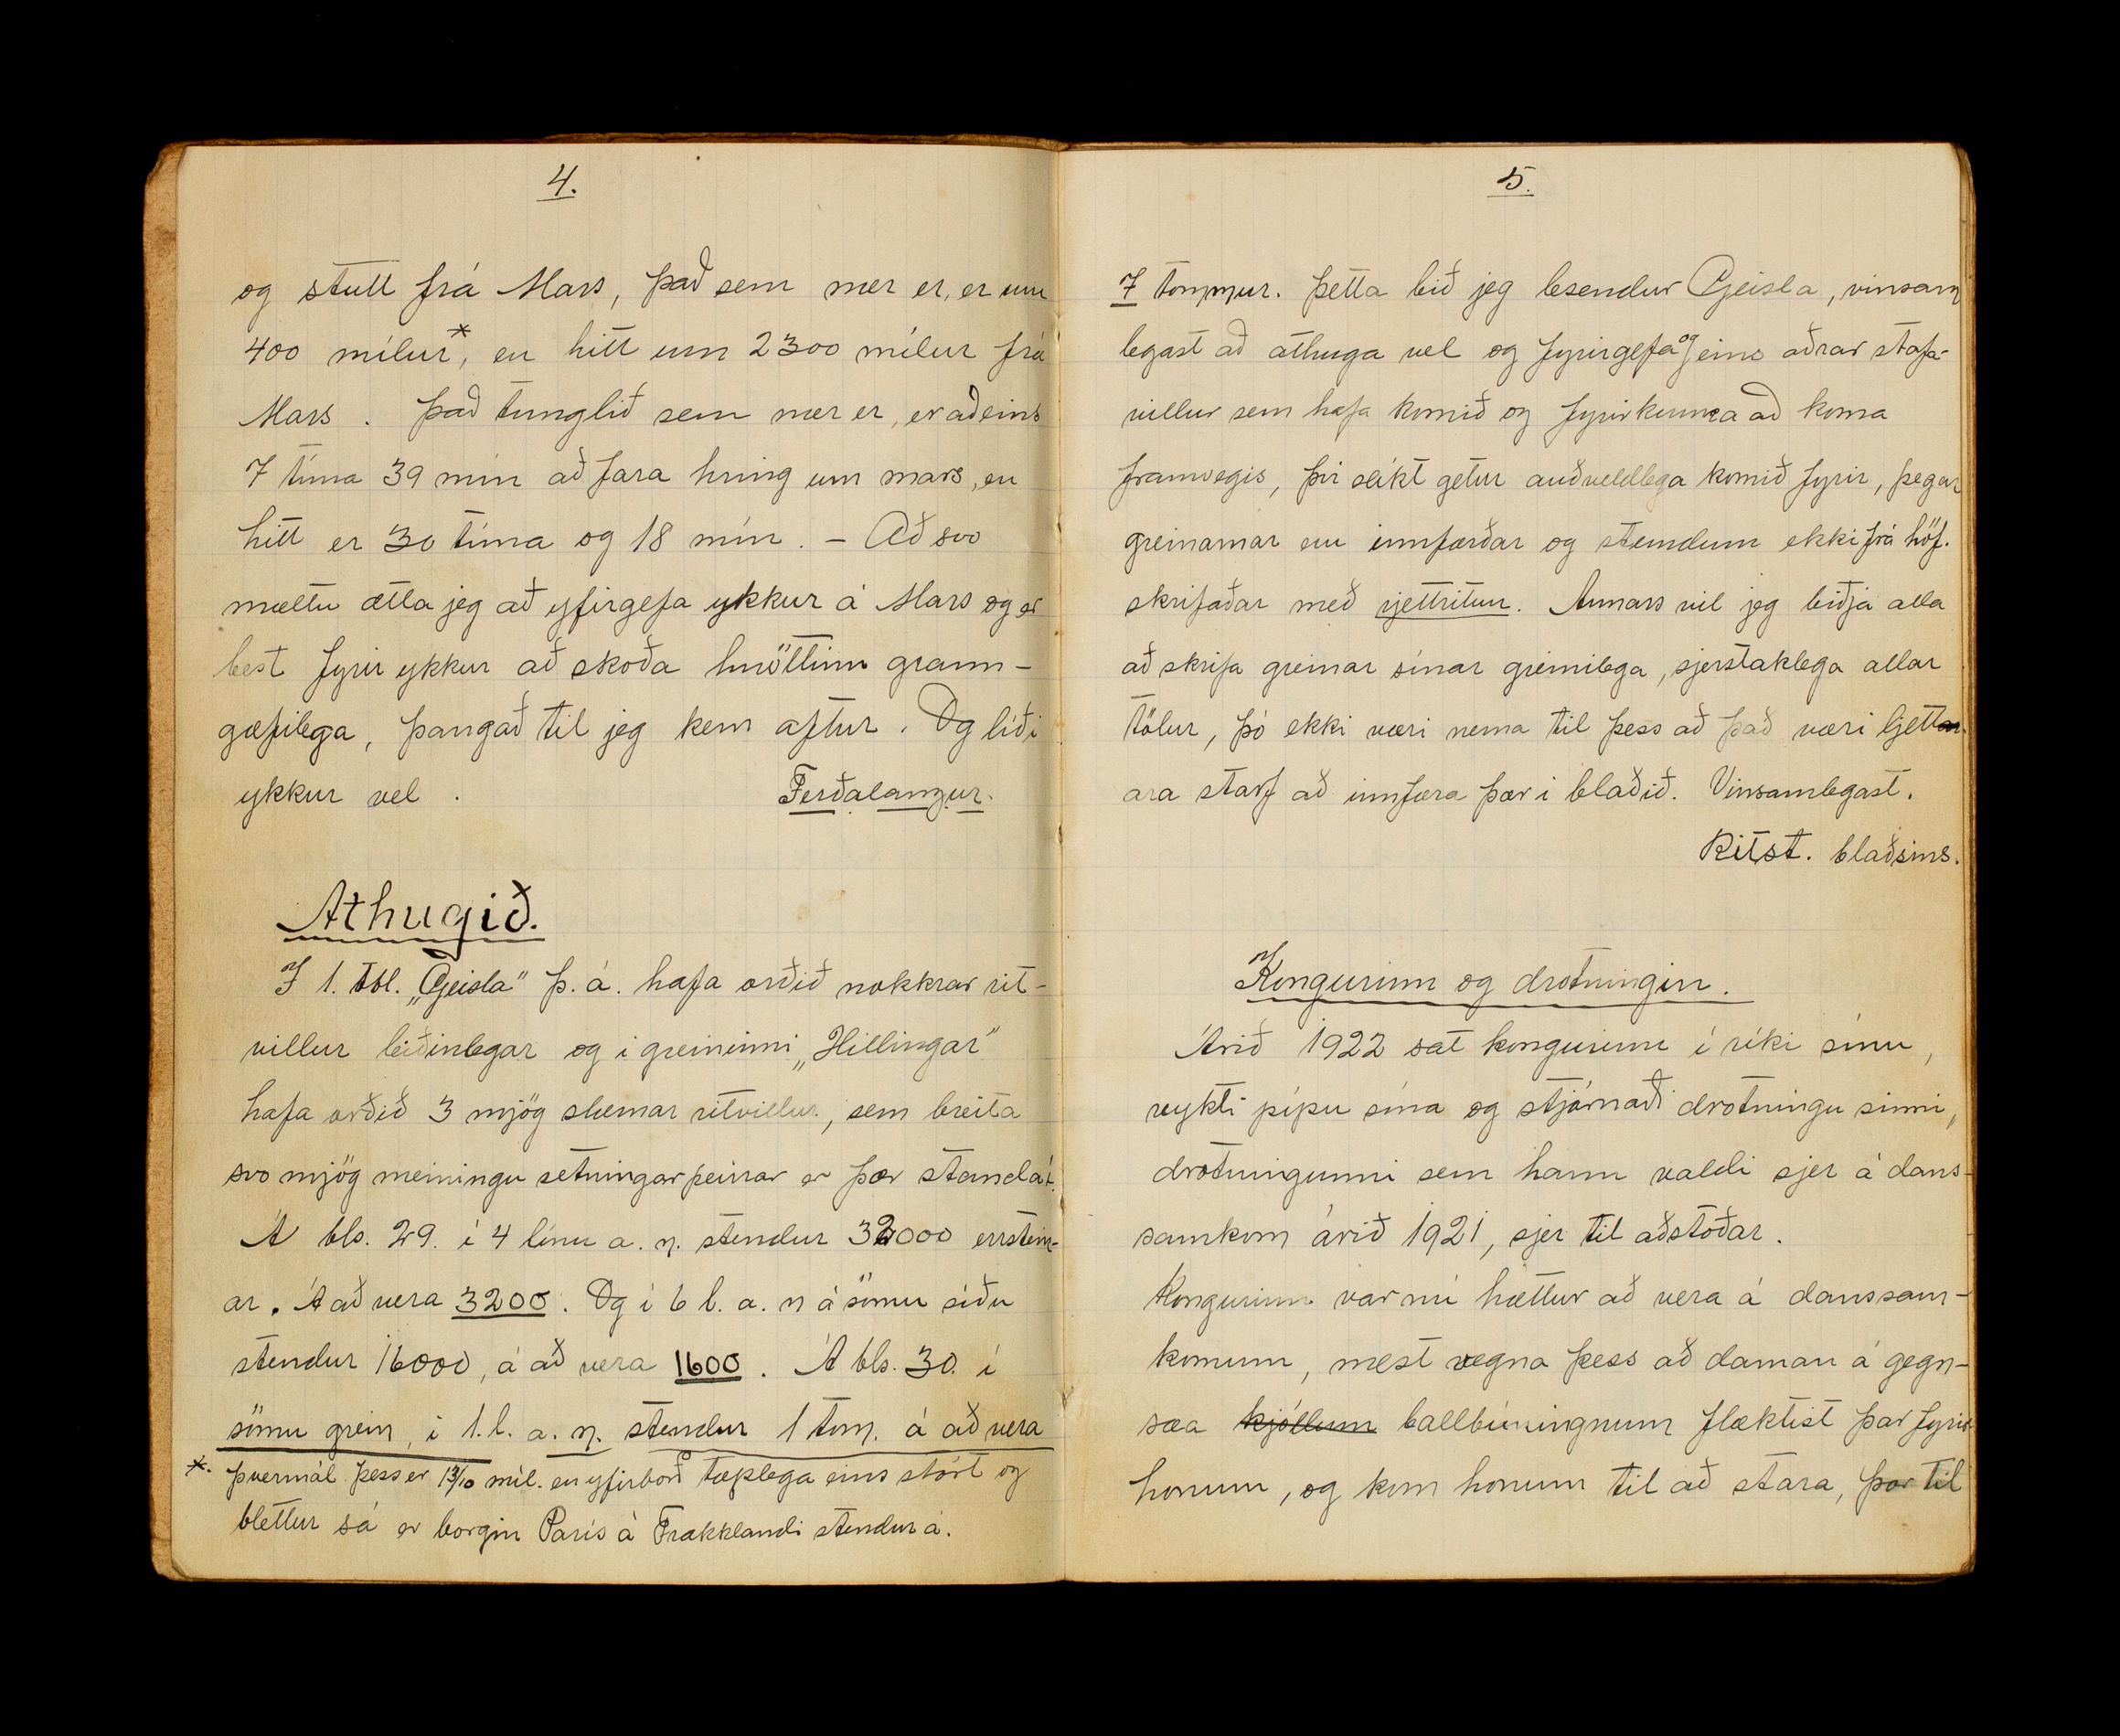 4.
og stutt frá Mars, það sem nær er, er um
400 mílur*, en hitt um 2300 mílur frá
Mars. Það tunglið sem nær er, er aðeins
7 tíma 39 mín að fara hring um mars, en
hitt er 30 tíma og 18 mín. - Að svo
mæltu ætla jeg að yfirgefa ykkur á Mars og er
best fyrir ykkur að skoða hnöttinn grann-
gæfilega, þangað til jeg kem aftur. Og líði
ykkur vel. Ferðalangur.
Athugið.
Í 1. tbl. „Geisla" þ.á. hafa orðið nokkrar rit-
villur leiðinlegar og i greininni „Hillingar"
hafa orðið 3 mjög slæmar ritvillur, sem breita
svo mjög meiningu setningar þeirrar er þær standa í.
Á bls. 29. í 4 línu a. n. stendur 32000 errstein-
ar. Á að vera 3200. Og í 6 l. a. n á sömu síðu
stendur 16000, á að vera 1600. Á bls. 30. í
sömu grein, i 1. l. a. n. stendur 1 tom. á að vera
*. Þvermál þess er 13/10 míl. en yfirborð tæplega eins stórt og
blettur sá er borgin París á Frakklandi stendur á.
5.
7 tommur. Þetta bið jeg lesendur Geisla, vinsam
legast að athuga vel og fyrirgefa og eins aðrar stafa-
villur sem hafa komið og fyrir kunna að koma
framvegis, því slíkt getur auðveldlega komið fyrir, þegar
greinarnar eru innfærðar og stundum ekki frá höf.
skrifaðar með rjettritun. Annars vil jeg biðja alla
að skrifa greinar sínar greinilega, sjerstaklega allar
tölur, þó ekki væri nema til þess að það væri ljett
ara starf að innfæra þær i blaðið. Vinsamlegast.
Ritst. blaðsins.
Kongurinn og drotningin.
Árið 1922 sat kongurinn í ríki sínu,
reykti pípu sína og stjórnaði drotningu sinni,
drotningunni sem hann valdi sjer á dans-
samkom árið 1921, sjer til aðstoðar.
Kongurinn var nú hættur að vera á danssam-
komum, mest vegna þess að daman á gegn-
sæa kjóllum ballbúningnum flæktist þar fyrir
honum, og kom honum til að stara, þar til